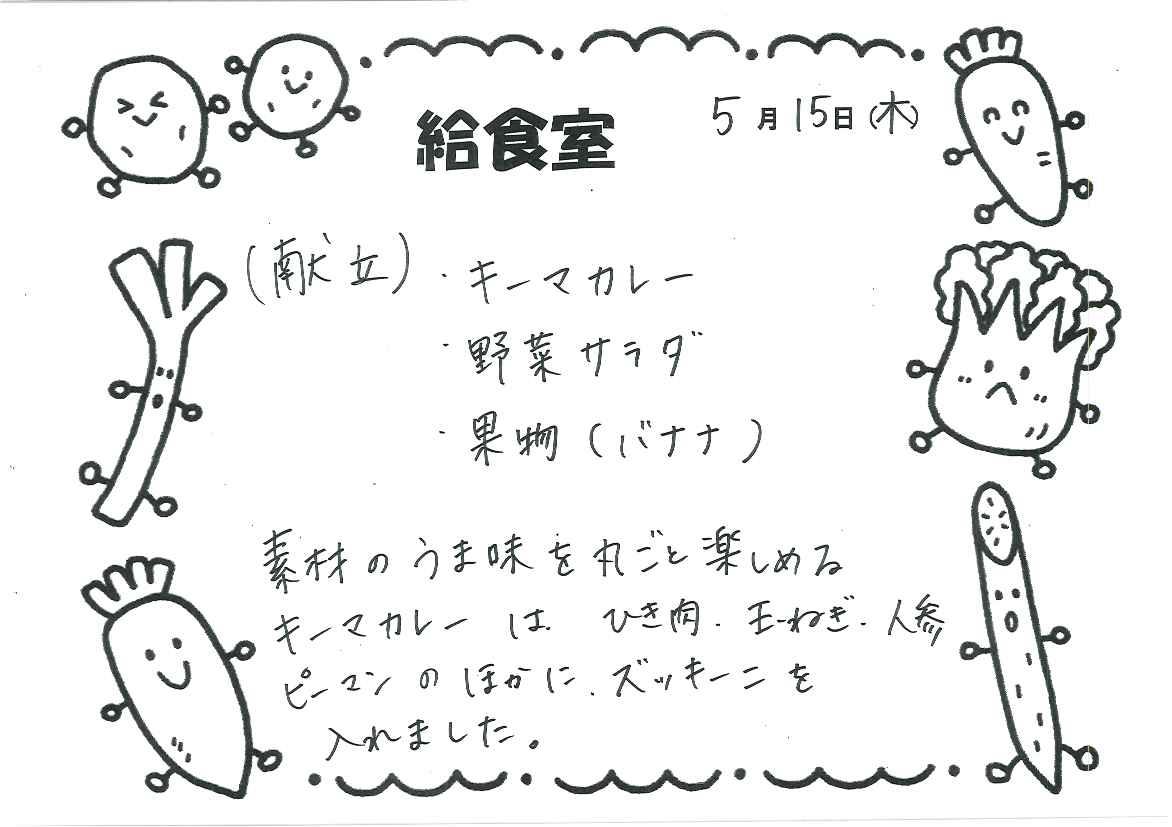 給食室
5月15日(木)
(献立)・キーマカレー
・野菜サラダ
・果物(バナナ)
素材のうま味を丸ごと楽しめる
キーマカレーは ひき肉.玉ねぎ.人参
ピーマンのほかに.ズッキーニを
入れました。